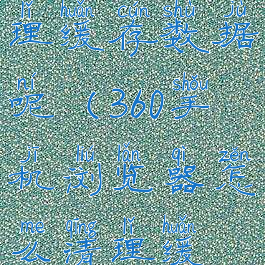 lǐ huǎn cún shù jù
理缓存数据
ní shǒu
呢(360手
jī liú lǎn qì zěn
机浏览器怎
me qīng lǐ huǎn
么清理缓